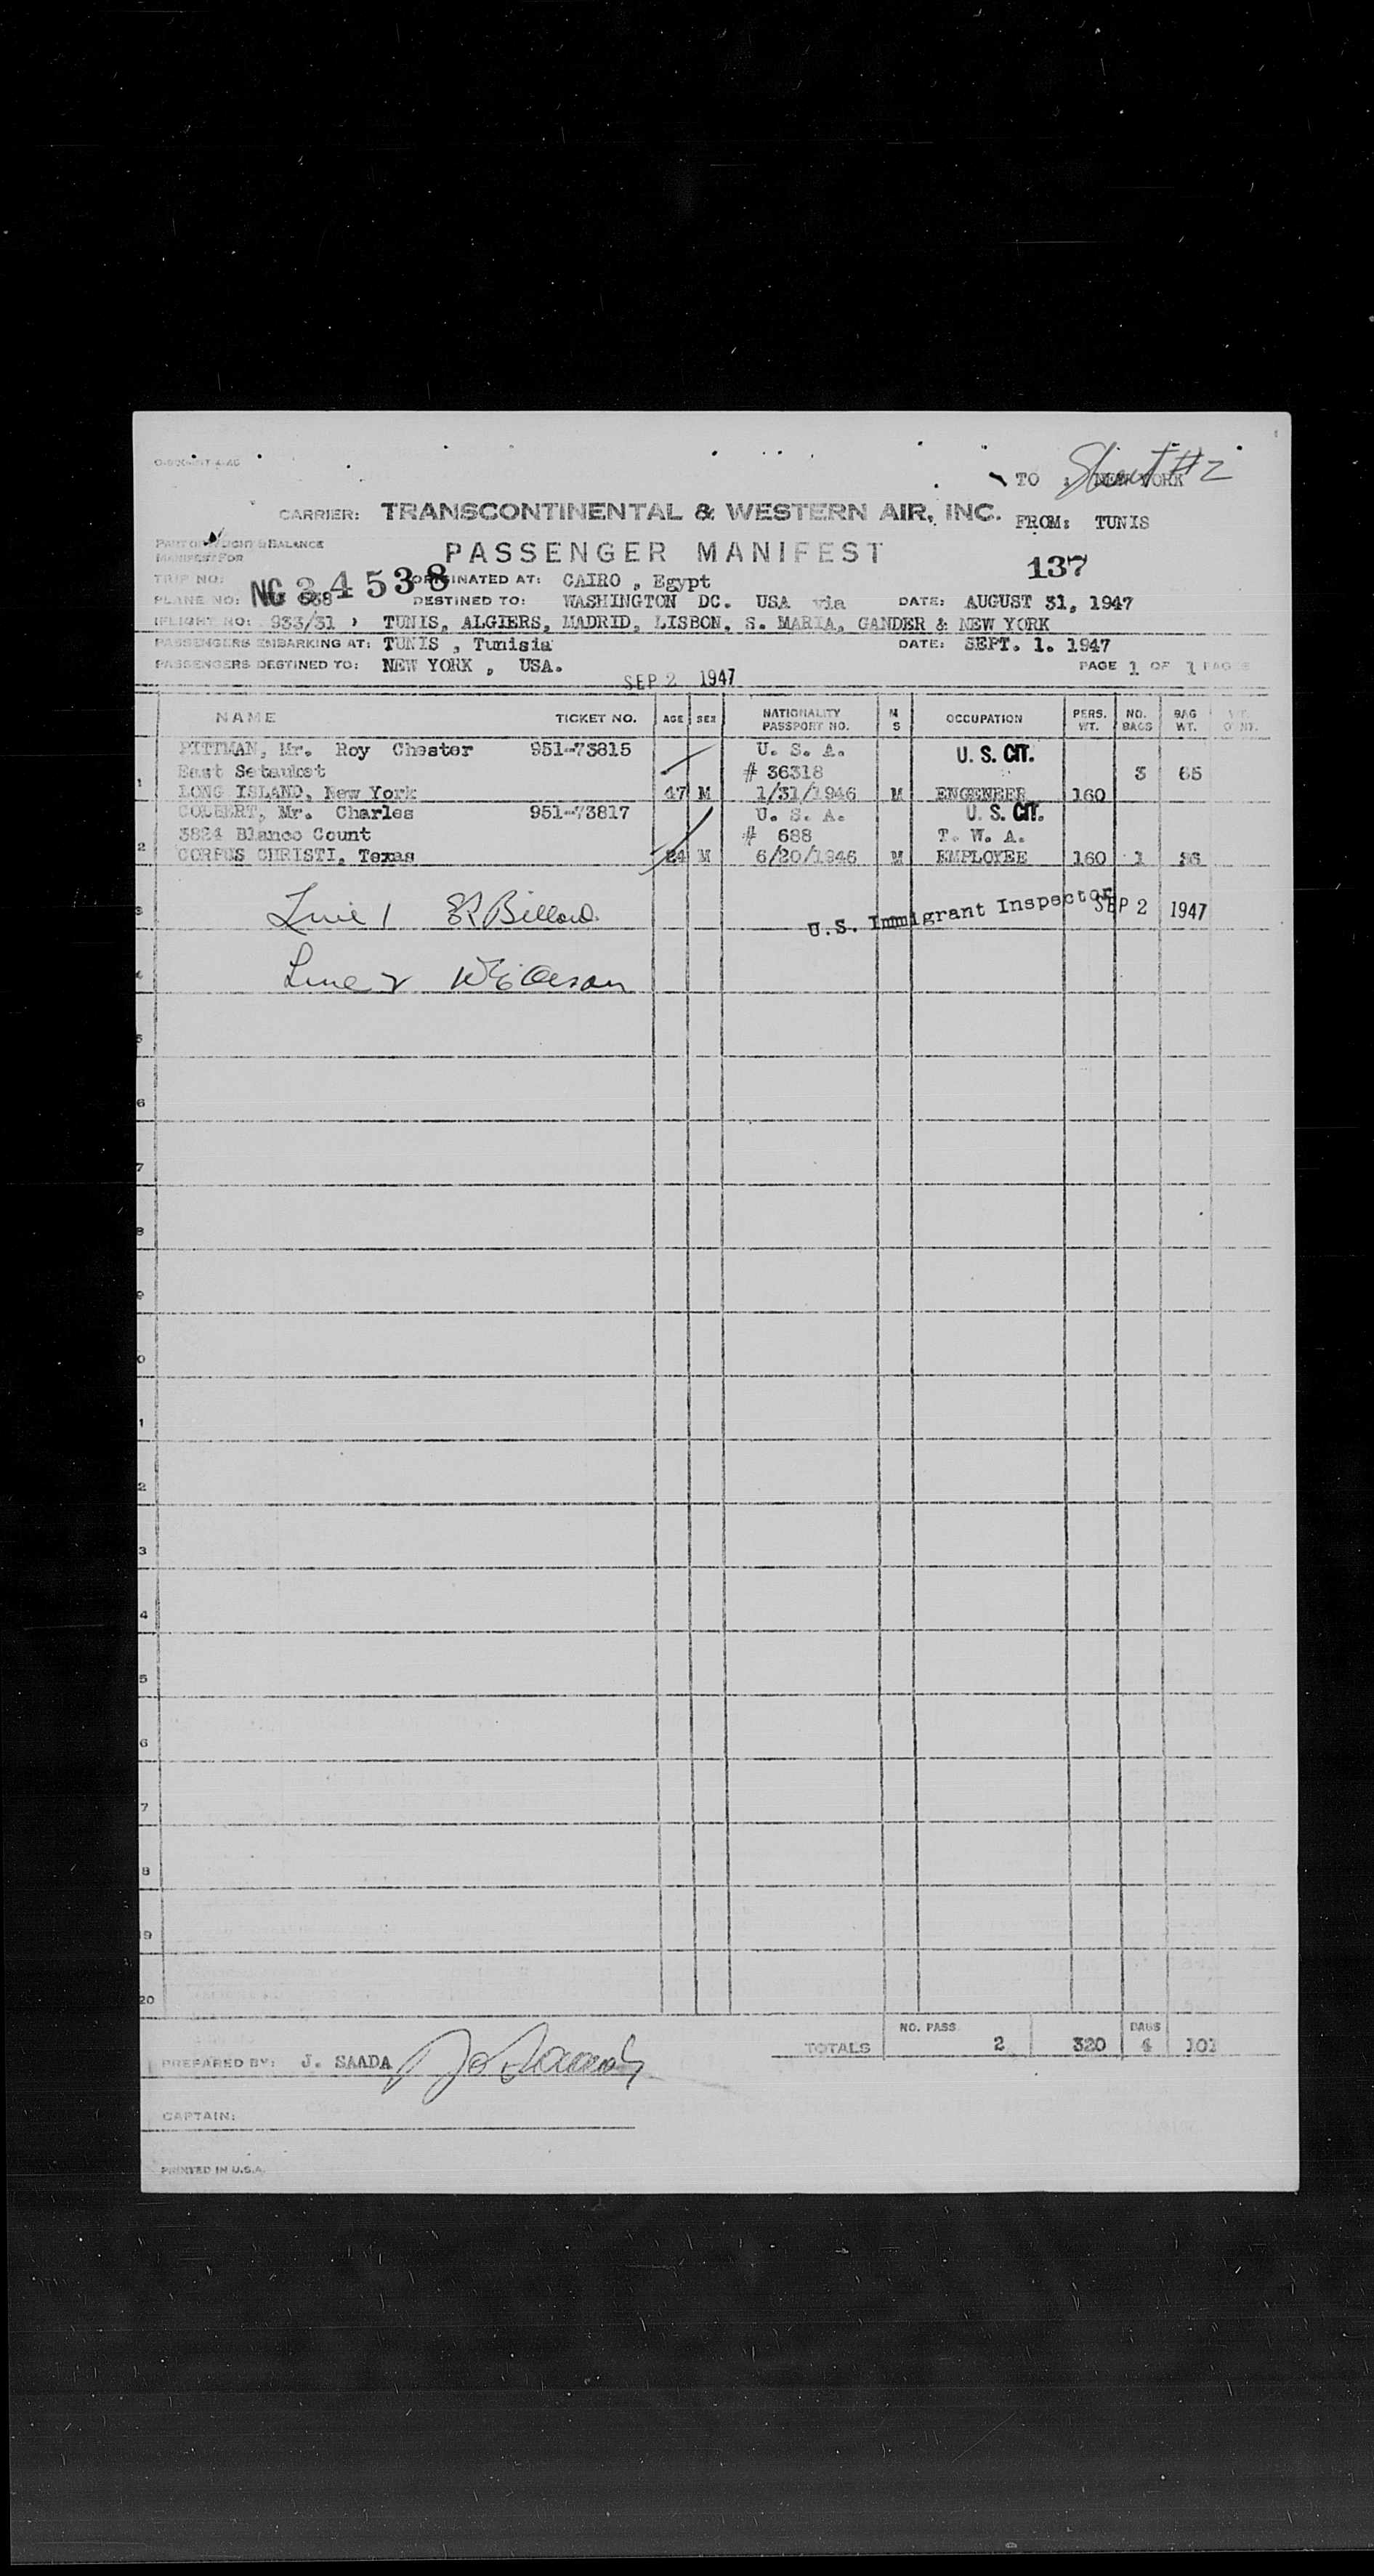 Sheet #2
TO : NEW YORK
CARRIER: TRANSCONTINENTAL & WESTERN AIR, INC. FROM: TUNIS
PART OF WEIGHT & BALANCE
MANIFEST FOR
PASSENGER MANIFEST
137
TRIP NO: ORIGINATED AT: CAIRO , Egypt
NC 34538
PLANE NO: DESTINED TO: WASHINGTON DC. USA via DATE: AUGUST 31, 1947
FLIGHT NO: 933/31 , TUNIS, ALGIERS, MADRID, LISBON, S. MARIA, GANDER & NEW YORK
PASSENGERS EMBARKING AT: TUNIS , Tunisia DATE: SEPT. 1. 1947
PASSENGERS DESTINED TO: NEW YORK , USA. PAGE 1 OF 1 PAGES
SEP 2 1947
NAME TICKET NO. AGE SEX NATIONALITY PASSPORT NO. M S OCCUPATION PERS. WT. NO. BAGS BAG WT.
PITTMAN, Mr. Roy Chester 951-73815 U. S. A. U. S. CIT.
East Setauket # 36318 3 65
1 LONG ISLAND, New York 47 M 1/31/1946 M ENGENEER 160
COLBERT, Mr. Charles 951-73817 U. S. A. U. S. CIT.
3824 Blanco Count # 688 T. W. A.
2 CORPUS CHRISTI, Texas 24 M 6/20/1946 M EMPLOYEE 160 1 36
3 Line 1 U.S. Immigrant Inspector SEP 2 1947
4 Line 2
5
6
7
8
9
0
1
2
3
4
5
6
7
8
9
20
TOTALS NO. PASS 2 320 BAGS 4 101
PREPARED BY: J. SAADA
CAPTAIN:
PRINTED IN U.S.A.